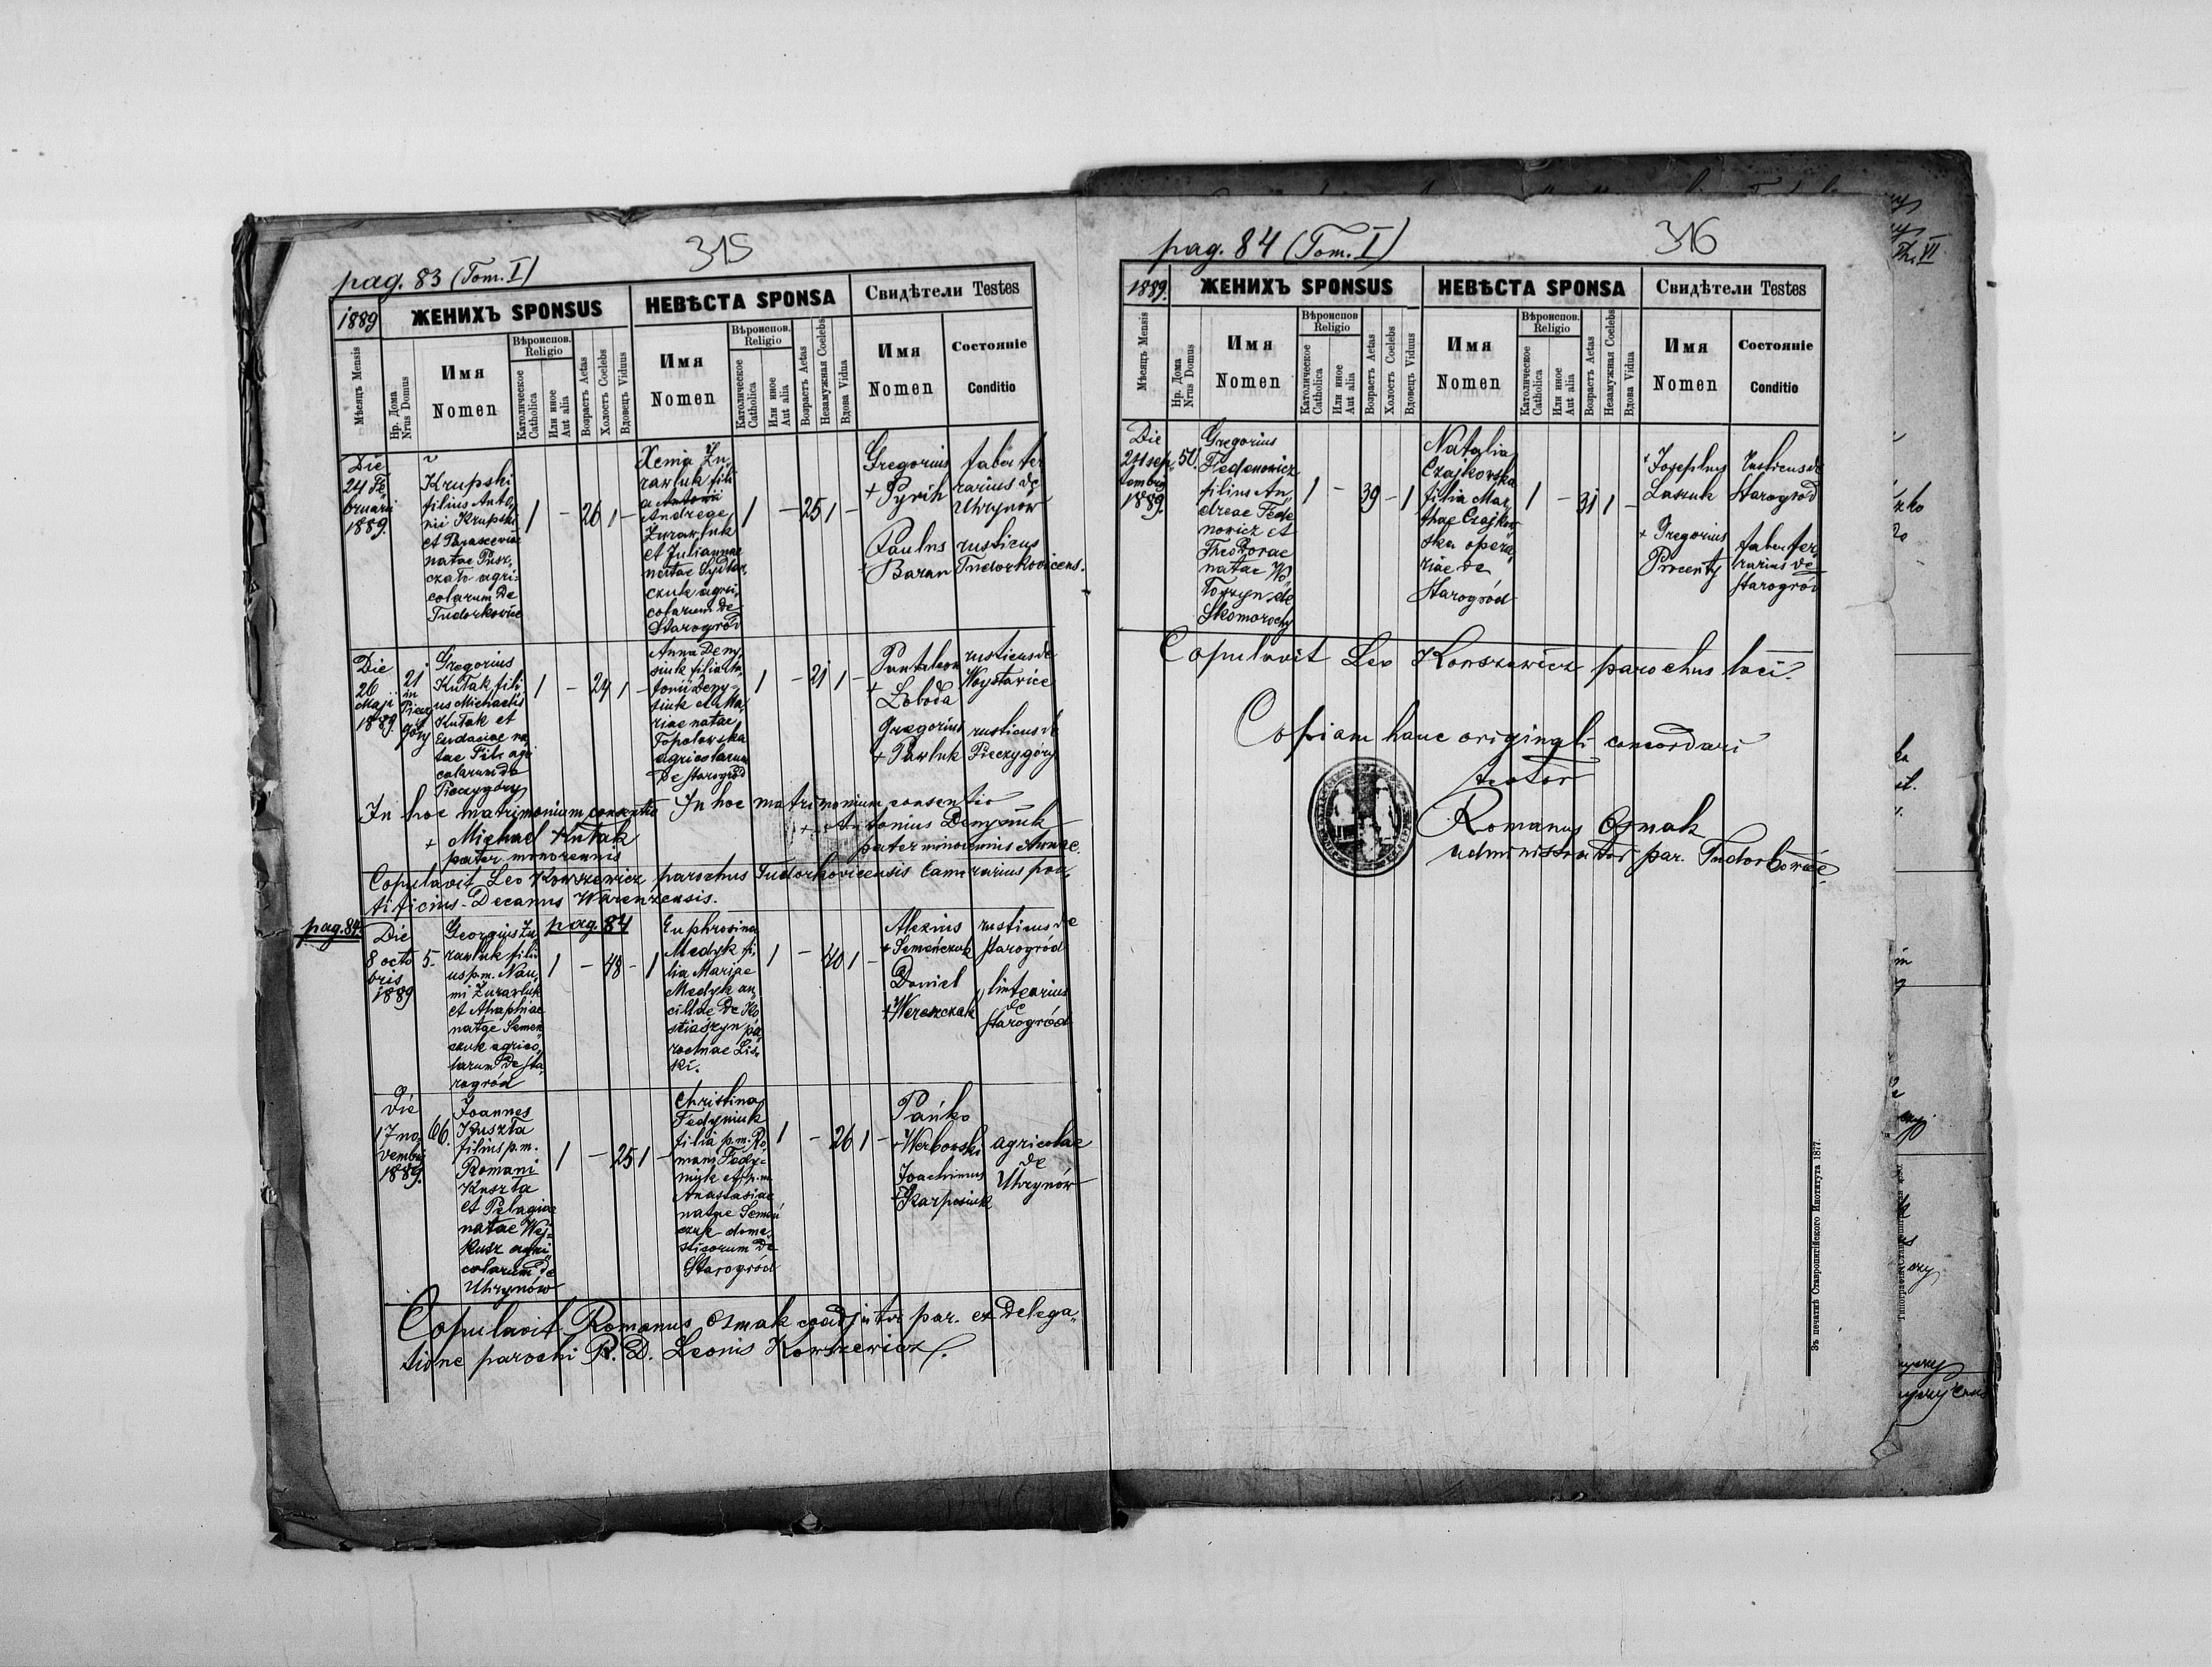 315
pag. 83 (Tom. I)
1889
ЖЕНИХЪ SPONSUS
НЕВѢСТА SPONSA
Свидѣтели Testes
Мѣсяцъ Mensis
Нр. Дома
Nrus Domus
Имя
Nomen
Вѣроиспов.
Religio
Католическое
Catholica
Или иное
Aut alia
Возрастъ Aetas
Холостъ Coelebs
Вдовецъ Viduus
Имя
Nomen
Вѣроиспов.
Religio
Католическое
Catholica
Или иное
Aut alia
Возрастъ Aetas
Незамужная Coelebs
Вдова Vidua
Имя
Nomen
Состояніе
Conditio
Die
24 Fe
bruarii
1889.
Krupski
filius Anto
nii Krupski
et Parasceviae
natae Pusz,
czało agri:
colarum de
Tudorkowice
1 - 26 1 -
Xenia Żu
rawluk fili
a Antonii
Andreae
Żurawluk
et Juliannae
natae Sydor,
czuk agri,
colarum de
Starogród
1 - 25 1 -
Gregorius
+ Pyrih
Paulus
Baran
faber fer
rarius de
Uhrynów
rusticus
Tudorkovicens.
Die
26
Maji
1889.
21
in
Piecz
góry
Gregorius
Kułak fili
us Michaelis
Kułak et
Eudociae na
tae Fil agri
colarum de
Pieczygóry
1 - 24 1 -
Anna Deny
siuk filia An,
tonii Deny-
siuk et Ma,
riae natae
Topolowska
agricolarum
de Starogród
1 - 21 1 -
Pantaleon
+
Łoboda
Gregorius
+ Pawluk
rusticus de
Woysławice
rusticus de
Pieczygóry
In hoc matrimonium consentio
+ Michael Kułak
pater minorennis
In hoc matrimonium consentio
+ Antonius Denysiuk
pater minorennis Annae.
Copulavit Leo Korszewicz parochus Tudorkovicensis Camerarius pon,
tificius - Decanus Warenzensis.
pag. 84.
pag. 84
Die
8 octo
bris
1889
5.
Georgius Żu
rawluk fili
us p.m. Nau,
mi Żurawluk
et Ahaphiae
natae Semen
czuk agrico,
larum de Sta,
rogród
1 - 48 - 1
Euphrosina
Medyk fi,
lia Mariae
Medyk an,
cillae de Ko
stiaszyn pa
rochiae Lis,
ki.
1 - 40 1 -
Alexius
+ Semeńczuk
Daniel
+ Wereszczak
rusticus de
Starogród
lintearius
de
Starogród
Die
17 no
vembris
1889.
66.
Joannes
Kuszta
filius p.m.
Romani
Kuszta
et Pelagiae
natae Wej-
kusz agri
colarum de
Uhrynów
1 - 25 1 -
Christina
Fedyniuk
filia p.m. Ro
mani Fedy-
niuk et p.m.
Anastasiae
natae Semeń
czuk dome,
sticorum de
Starogród
1 - 26 1 -
Pańko
+ Werbowski
Joachimus
+ Karpowiuk
agricolae
de
Uhrynów
Copulavit Romanus Ozmak coadjutor par. ex delega,,
tione parochi R. D. Leonis Korszewicz.
316
pag. 84 (Tom. I)
1889.
ЖЕНИХЪ SPONSUS
НЕВѢСТА SPONSA
Свидѣтели Testes
Мѣсяцъ Mensis
Нр. Дома
Nrus Domus
Имя
Nomen
Вѣроиспов
Religio
Католическое
Catholica
Или иное
Aut alia
Возрастъ Aetas
Холостъ Coelebs
Вдовецъ Viduus
Имя
Nomen
Вѣроиспов.
Religio
Католическое
Catholica
Или иное
Aut alia
Возрастъ Aetas
Незамужная Coelebs
Вдова Vidua
Имя
Nomen
Состояніе
Conditio
Die
24 sep,
tembris
1889.
50.
Gregorius
Fedonowicz
filius An,
dreae Fedo
nowicz et
Theodorae
natae Wo
łoszyn de
Skomorochy
1 - 39 - 1
Natalia
Czajkowska
filia Mar,
thae Czajkow
ska opera
riae de
Starogród
1 - 31 1 -
+ Josephus
Laszuk
+ Gregorius
Procenty
rusticus de
Starogród
faber fer,
rarius de
Starogród
Copulavit Leo Korszewicz parochus loci.
Copiam hanc originali concordari
testor
Romanus Ozmak
administrator par. Tudorkowice.
Зъ печатнѣ Ставропигійского Института 1877.